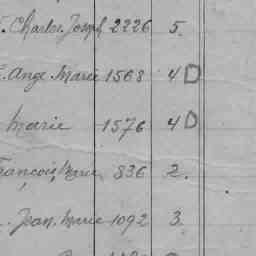 Charles Joseph 2226 5.
Ange Marie 1568 4 D
Marie 1576 4 D
François Marie 836 2.
Jean Marie 1092 3.